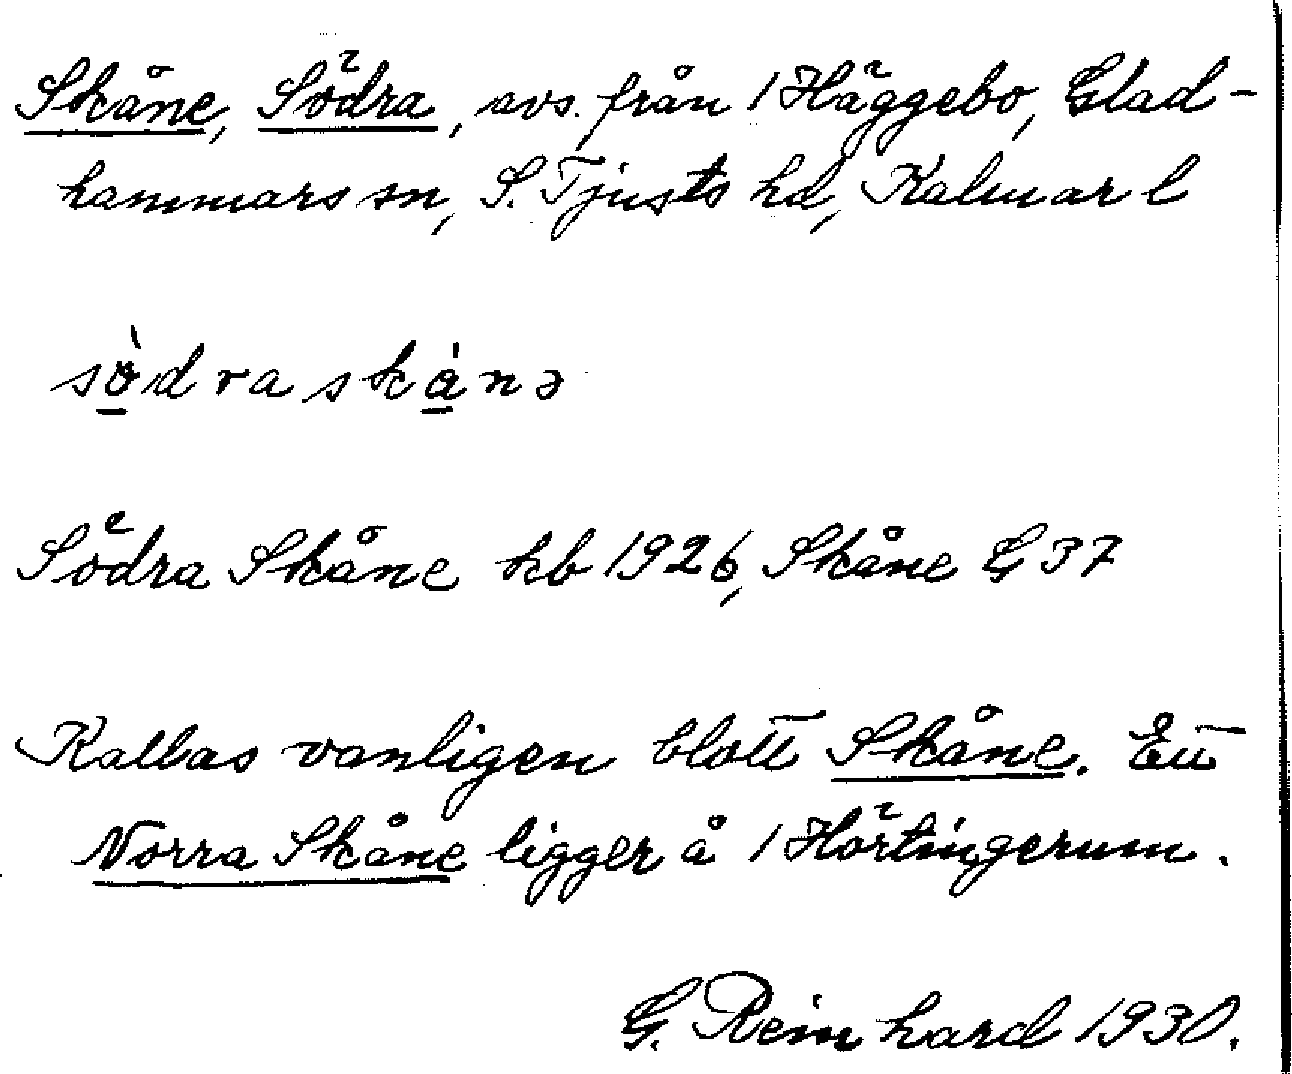 Skåne, Södra, avs. från 1 Häggebo, Glad-
hammars sn, S. Tjusts hd, Kalmar l
sö̀draskånə
Södra Skåne kb 1926, Skåne G 37
Kallas vanligen blott Skåne. Ett
Norra Skåne ligger å 1 Hörtingerum.
G. Reinhard 1930.